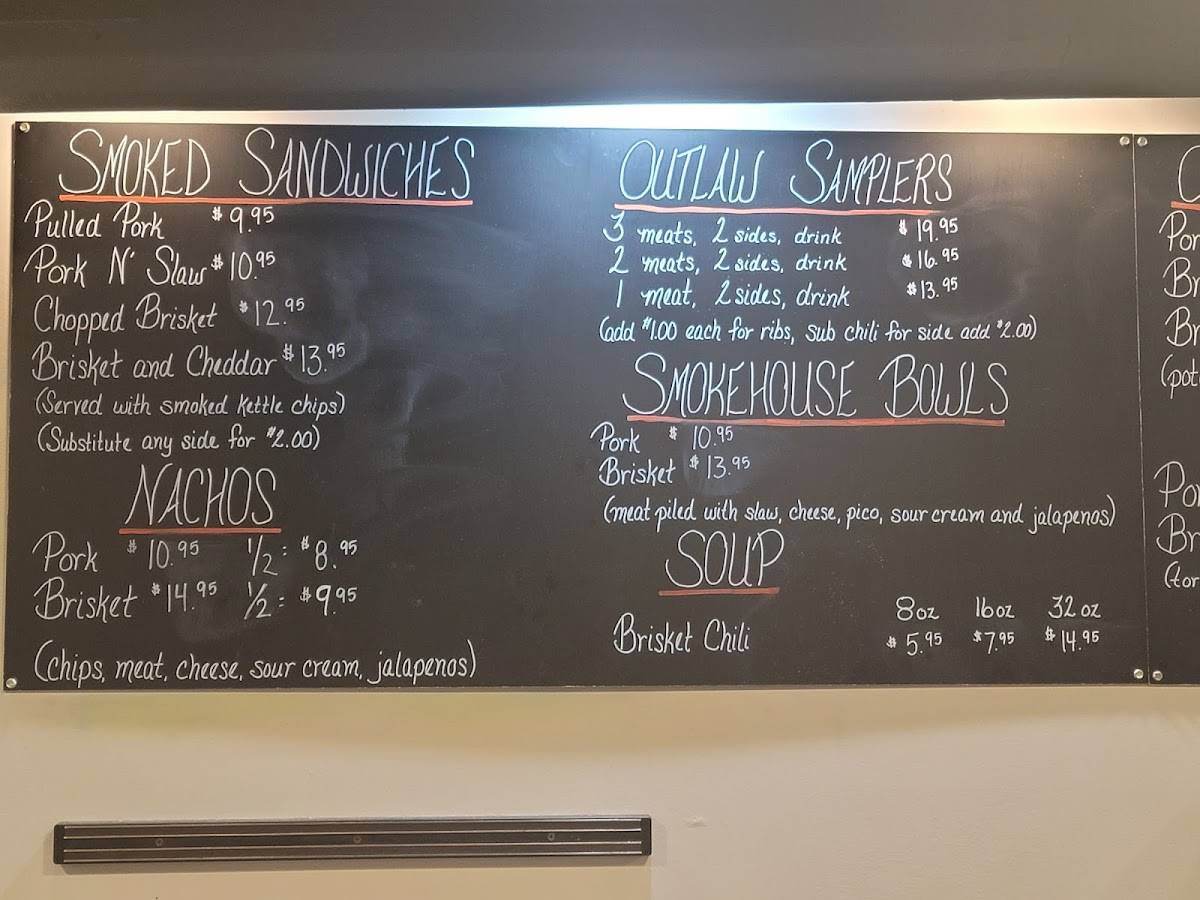 SMOKED SANDWICHES
Pulled Pork $9.95
Pork N' Slaw $10.95
Chopped Brisket $12.95
Brisket and Cheddar $13.95
(Served with smoked kettle chips)
(Substitute any side for $2.00)
NACHOS
Pork $10.95 1/2 = $8.95
Brisket $14.95 1/2 = $9.95
(chips, meat, cheese, sour cream, jalapenos)
OUTLAW SAMPLERS
3 meats, 2 sides, drink $19.95
2 meats, 2 sides, drink $16.95
1 meat, 2 sides, drink $13.95
(add $1.00 each for ribs, sub chili for side add $2.00)
SMOKEHOUSE BOWLS
Pork $10.95
Brisket $13.95
(meat piled with slaw, cheese, pico, sour cream and jalapenos)
SOUP
8oz 16oz 32oz
Brisket Chili $5.95 $7.95 $14.95